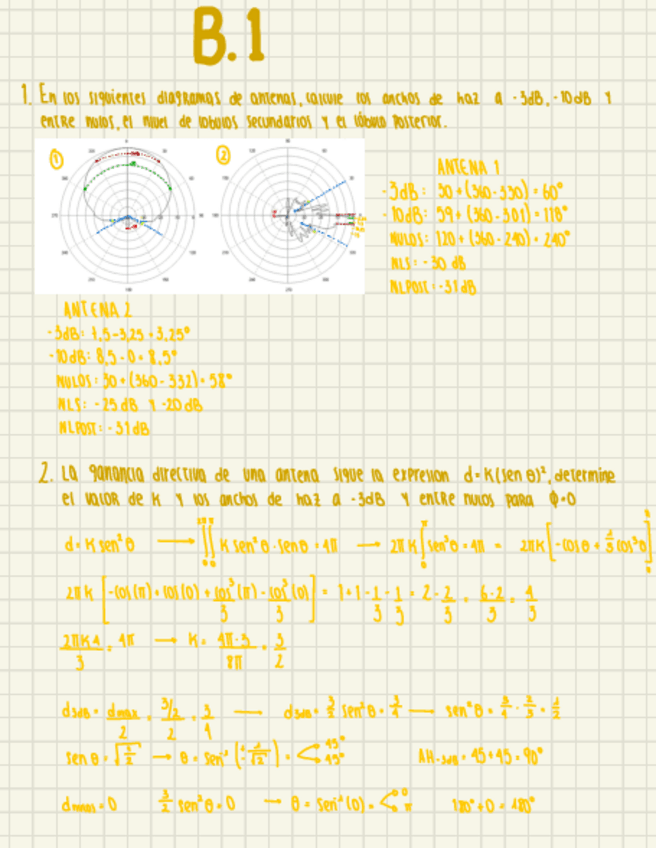 B.1
1. En los siguientes diagramas de antenas, calcule los anchos de haz a -3dB, -10dB y
entre nulos, el nivel de lóbulos secundarios y el lóbulo posterior.
① ②
ANTENA 1
-3dB: 30+(360-330)=60°
-10dB: 59+(360-301)=118°
NULOS: 120+(360-240)=240°
NLS: -30 dB
NLPOST: -31dB
ANTENA 2
-3dB: -3,25=3,25°
-10dB: 8,5-0=8,5°
NULOS: 30+(360-332)=58°
NLS: -25dB Y -20dB
NLPOST: -31dB
2. La ganancia directiva de una antena sigue la expresion d=K(sen θ)², determine
el valor de K y los anchos de haz a -3dB y entre nulos para ϕ=0
d=K sen²θ → ∬ K sen²θ·senθ=4π → 2πK∫sen³θ=4π = 2πK[-cosθ+1/3 cos³θ]
2πK [-cos(π)+cos(0)+cos³(π)/3-cos³(0)/3] = 1+1-1/3-1/3 = 2-2/3 = 6-2/3 = 4/3
2πK4/3 = 4π → K= 4π·3/8π = 3/2
d3dB= dmax/2 = 3/2/2 = 3/4 → d3dB= 3/2 sen²θ= 3/4 → sen²θ= 3/4 · 2/3 = 1/2
sen θ= → θ= sen⁻¹ = < 45°
AH-3dB= 45+45=90°
=0 3/2 sen²θ=0 → θ= sen⁻¹(0)= < 0 π 180°+0=180°